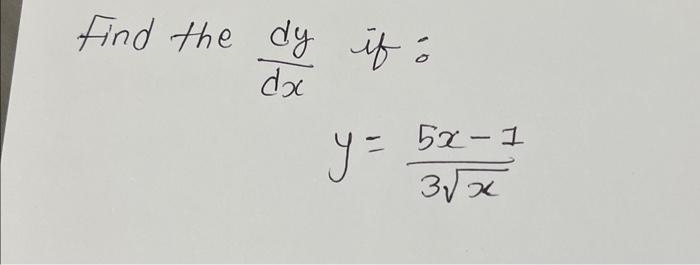 find the dy/dx if :
y = (5x - 1)/(3√x)